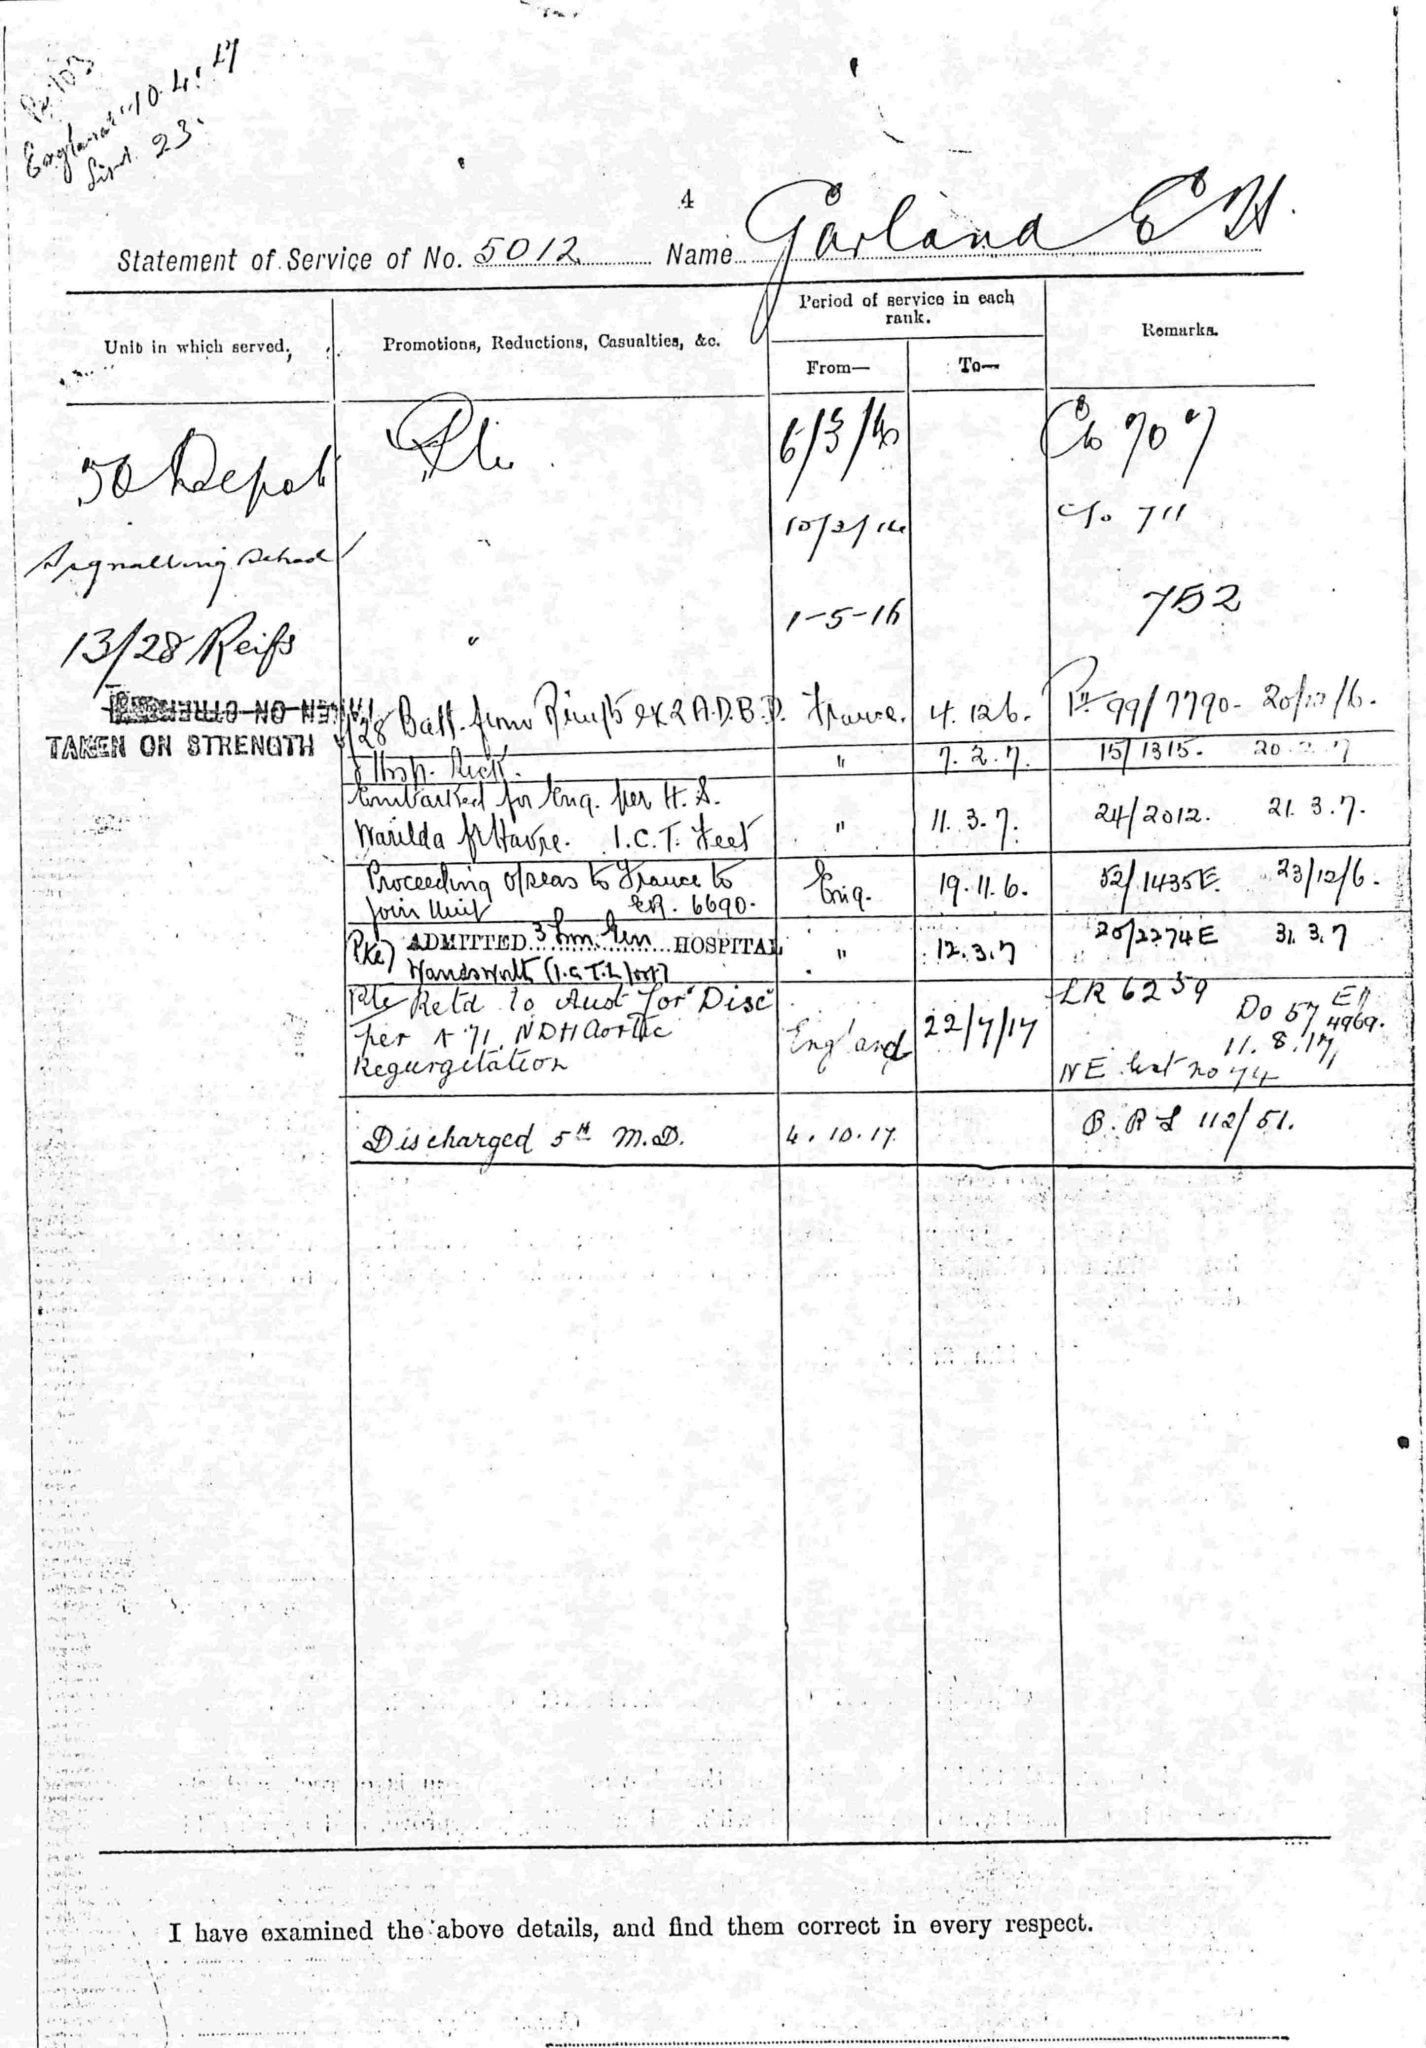 England 10.4.17
List 23.
4
Statement of Service of No. 5012 Name Garland E H.
Unit in which served.
Promotions, Reductions, Casualties, &c.
Period of service in each rank.
From—
To—
Remarks.
50 Depot Pte. 6/3/16 C/o 707
Signalling School " 10/3/16 C/o 711
13/28 Reifs " 1-5-16 752
TAKEN ON STRENGTH
TAKEN ON STRENGTH
28 Batt. from Rinfts ex 2 A.D.B.D. France. 4.12.6. Pt II 99/7790- 20/12/6.
Hosp. Sick. " 7.2.7. 15/1315. 20.2.7
Embarked for Eng. per H.S.
Warilda fr Havre. I.C.T. Feet " 11.3.7. 24/2012. 21.3.7.
Proceeding o/seas to France to
join Unit ER. 6690. Eng. 19.11.6. 52/1435E. 23/12/6.
(Pte) ADMITTED 3 Lon. Gen HOSPITAL
Wandsworth (I.C.T. L/foot) " 12.3.7 20/2274E 31.3.7
Pte Retd to Aust for Disc
per A 71. NDH Aortic
Regurgitation England 22/7/17
LR 6259
Do 57 En 4969.
11.8.17
NE List no 74
Discharged 5th M.D. 4.10.17. B.R L 112/51.
I have examined the above details, and find them correct in every respect.